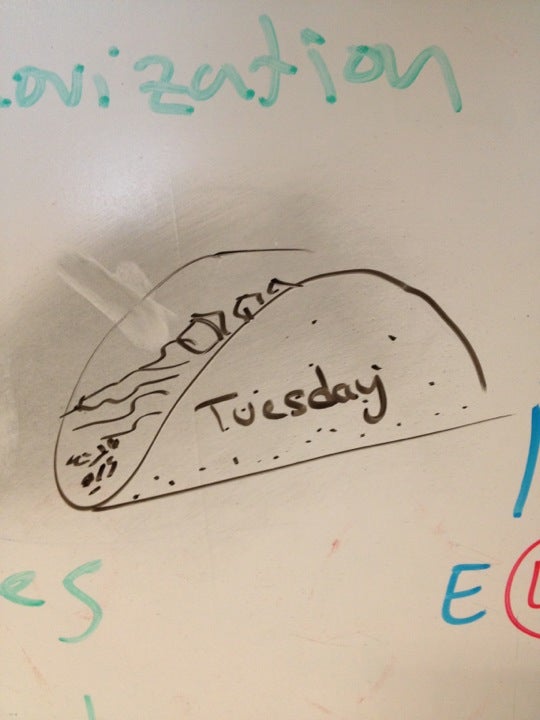 orization
Tuesday
es
E